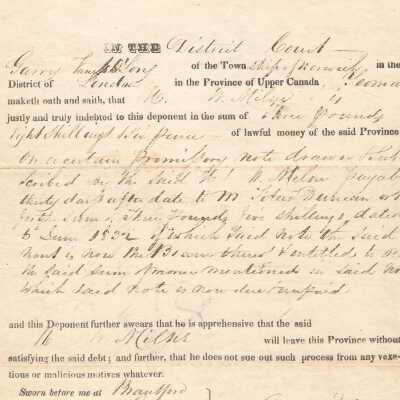 IN THE District Court
Garry of the Town ship of in the
District of London in the Province of Upper Canada, Yeoman
maketh oath and saith, that W. Milne is
justly and truly indebted to this deponent in the sum of three pounds
eight shillings & pence of lawful money of the said Province
On a certain Promissory note drawn & sub
scribed by the said W. Milne payab
thirty days after date to Mr. Peter Duncan
sum of three Pounds five shillings, dated
June 1832 of which said note the said
is now the Bearer thereof & entitled to
the said sum of money mentioned in said no
which said note is now due & unpaid
and this Deponent further swears that he is apprehensive that the said
W Milne will leave this Province without
satisfying the said debt; and further, that he does not sue out such process from any vexa-
tious or malicious motives whatever.
Sworn before me at Brantford